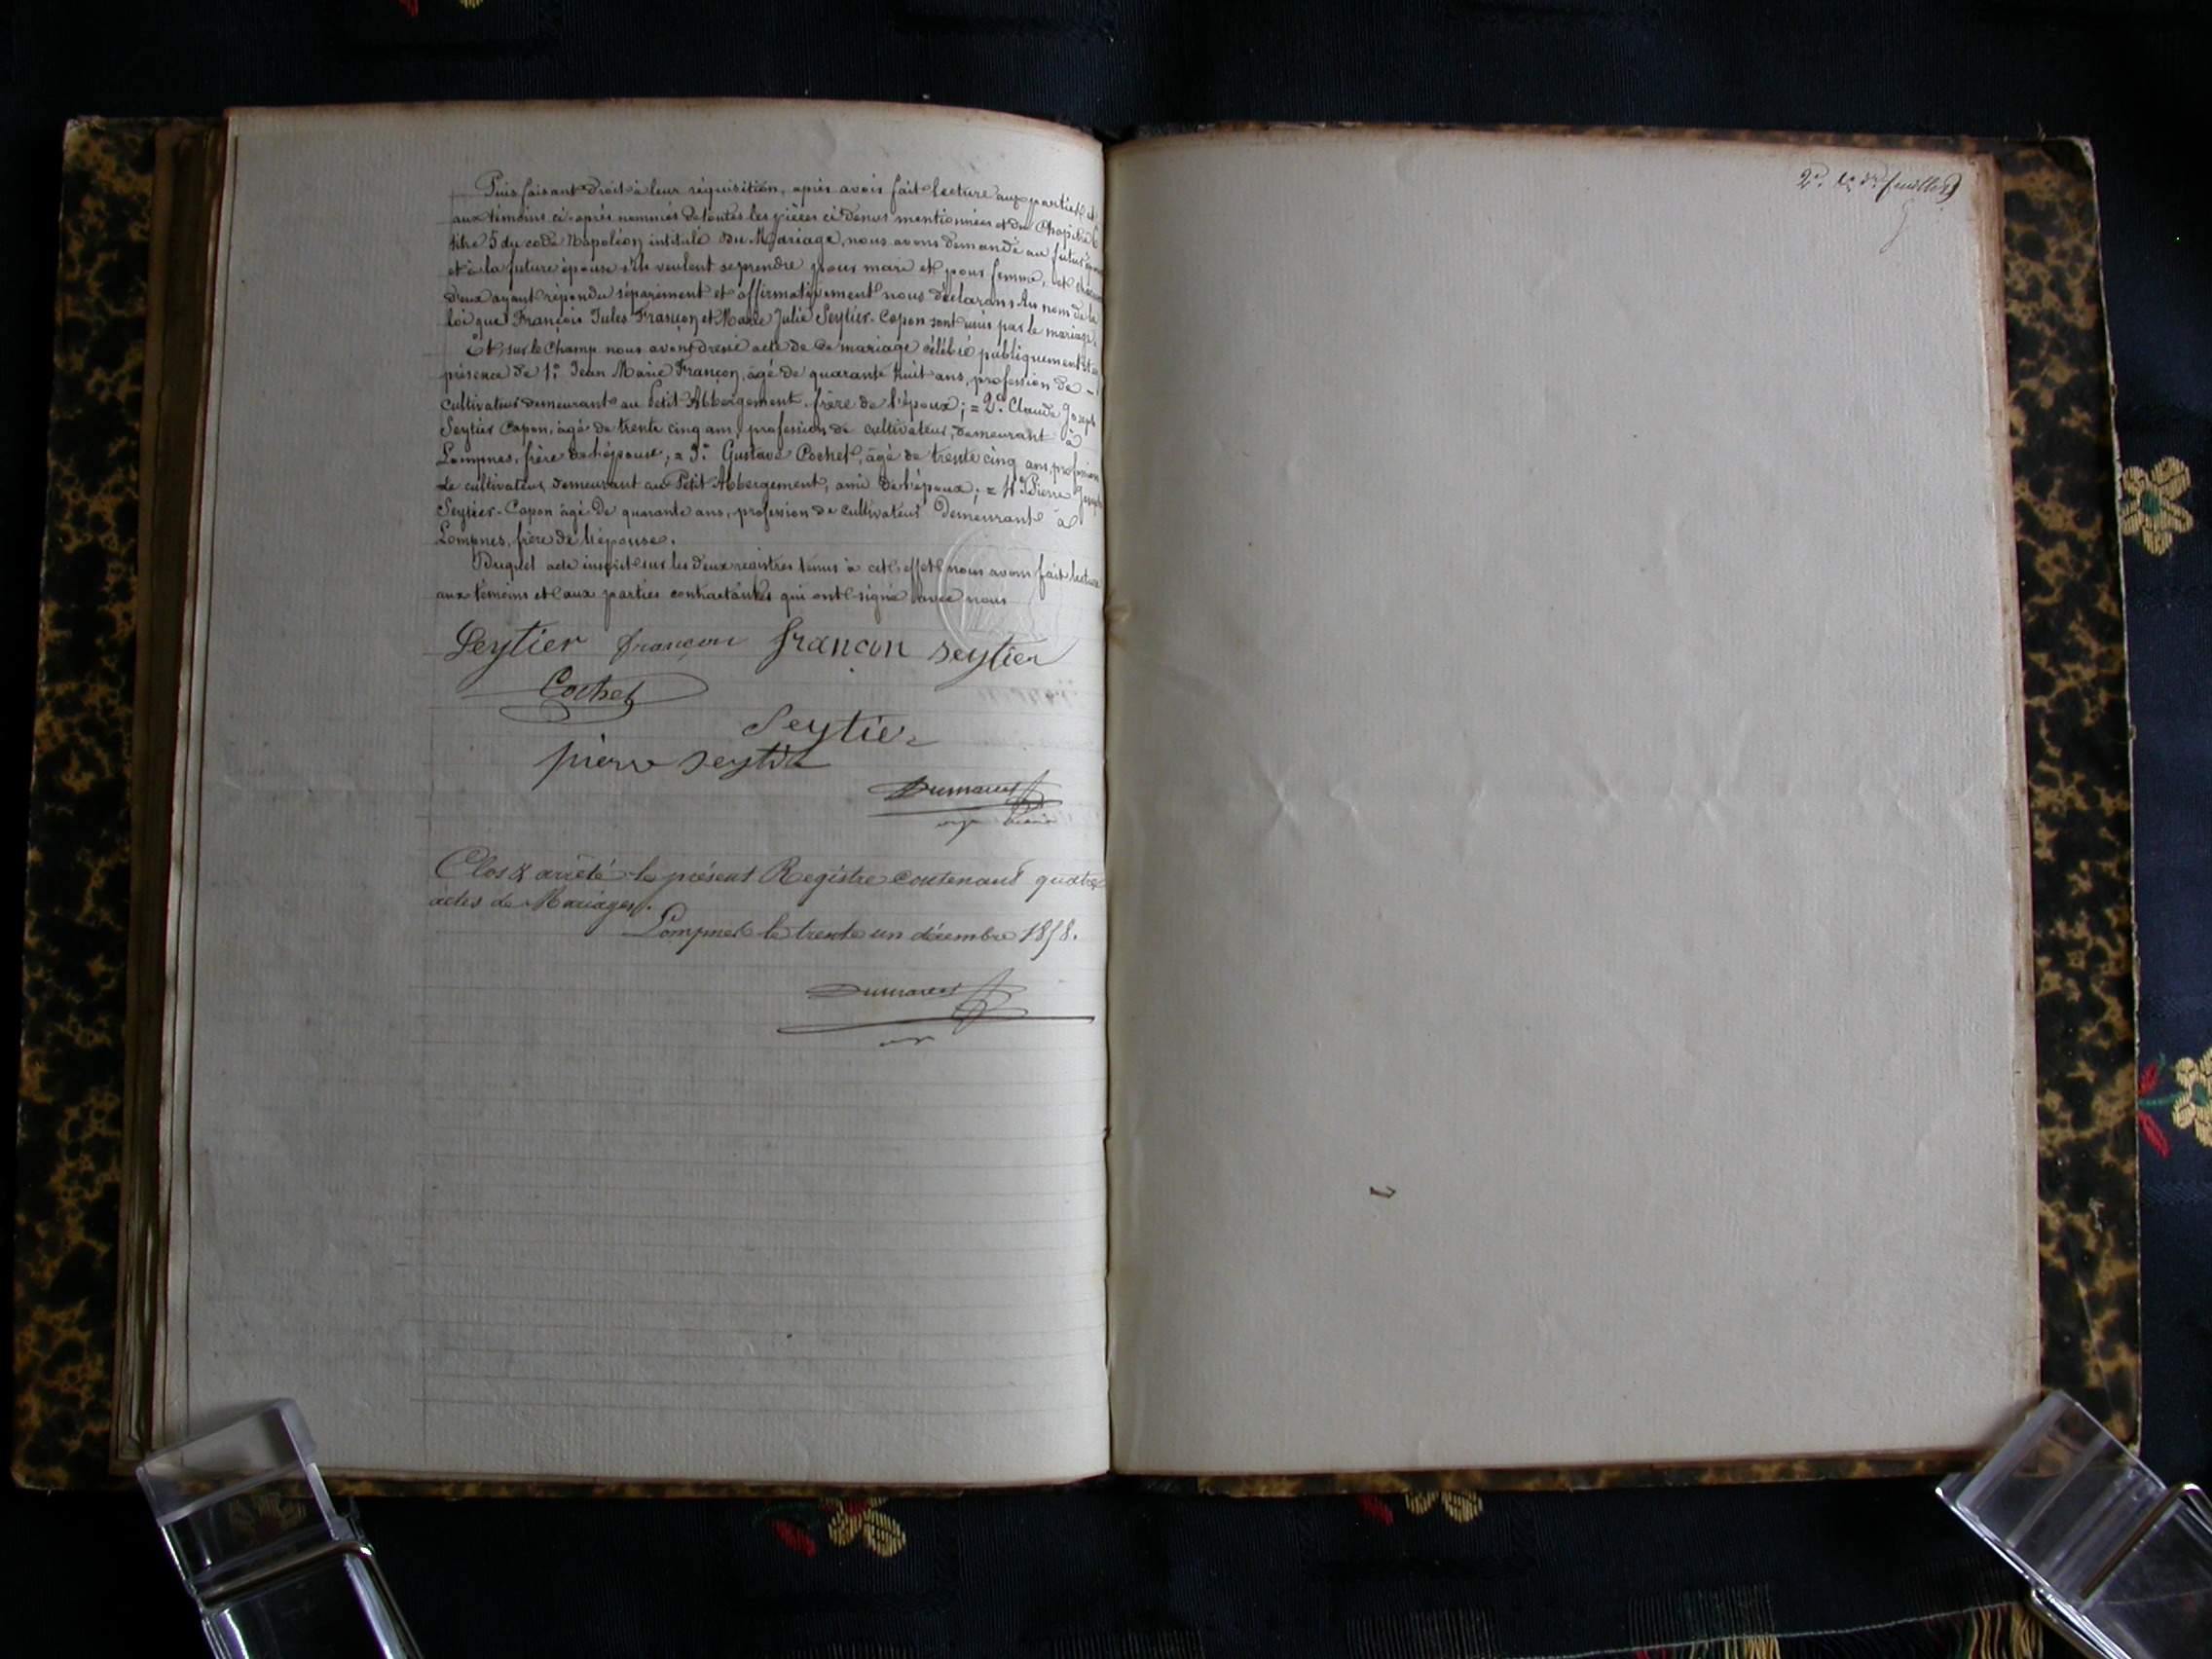 Puis faisant droit à leur réquisition, après avoir fait lecture aux parties et
aux témoins ci-après nommés de toutes les pièces ci dessus mentionnées et du Chapitre 6
titre 5 du code Napoléon intitulé du Mariage, nous avons demandé au futur époux
et à la future épouse s'ils veulent se prendre pour mari et pour femme, et chacun
d'eux ayant répondu séparément et affirmativement nous déclarons Au nom de la
loi que François Jules Françon et Marie Julie Seytier-Capon sont unis par le mariage.
Et, sur le Champ nous avons dressé acte de ce mariage célébré publiquement et en
présence de 1.° Jean Marie Françon, âgé de quarante huit ans, profession de -
cultivateur demeurant au Petit-Abbergement, frère de l'époux; = 2.° Claude Joseph
Seytier Capon, âgé de trente cinq ans, profession de cultivateur, demeurant à
Lompnes, frère de l'épouse; = 3.° Gustave Cochet, âgé de trente cinq ans, profession
de cultivateur demeurant au Petit Abbergement, ami de l'époux; = 4.° Pierre Joseph
Seytier-Capon âgé de quarante ans, profession de cultivateur demeurant à
Lompnes, frère de l'épouse.
Duquel acte inscrit sur les deux registres tenus à cet effet nous avons fait lecture
aux témoins et aux parties contractantes qui ont signé avec nous
Seytier françon françon seytier
Cochet
Seytier
pierre seytier
Dumarest
Clos & arrêté le présent Registre contenant quatre
actes de Mariages.
Lompnes le trente un décembre 1858.
Dumarest
2e. & der feuillet